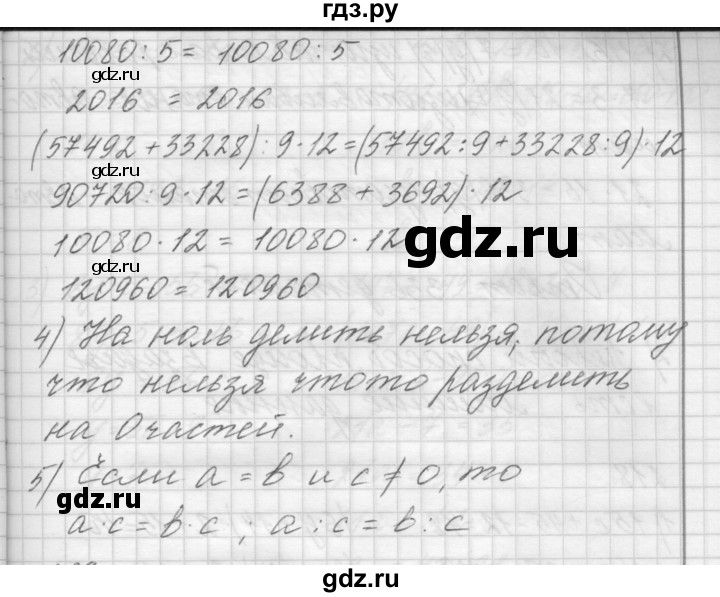 гдз.ру
10080 : 5 = 10080 : 5
gdz.ru
2016 = 2016
(57492 + 33228) : 9 · 12 = (57492 : 9 + 33228 : 9) · 12
90720 : 9 · 12 = (6388 + 3692) · 12
gdz.ru
10080 · 12 = 10080 · 12
gdz.ru
120960 = 120960
4) На ноль делить нельзя, потому
что нельзя чтото разделить
на 0 частей.
5) Если a = b и c ≠ 0, то
gdz.ru
a · c = b · c ; a : c = b : c
gdz.ru